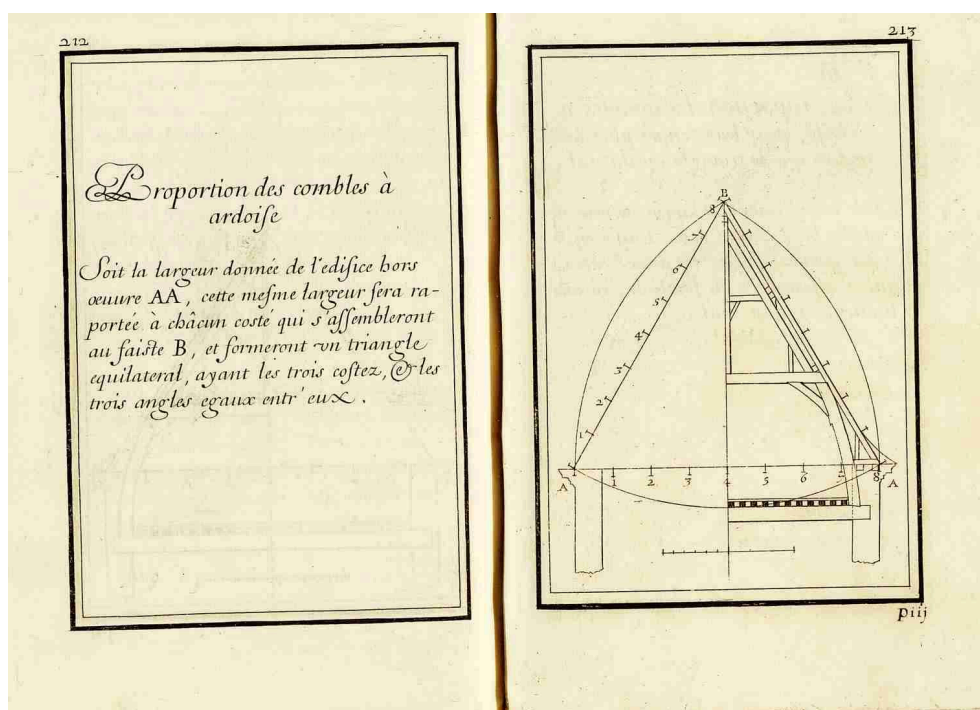 212
Proportion des combles à
ardoiſe
Soit la largeur donnée de l'edifice hors
œuure AA, cette meſme largeur ſera ra-
portée à châcun coſté qui s'aſſembleront
au faiſte B, et formeront vn triangle
equilateral, ayant les trois coſtez, & les
trois angles egaux entr'eux.
213
B
8
7
6
5
4
3
2
1
A 1 2 3 4 5 6 7 8 A
piij